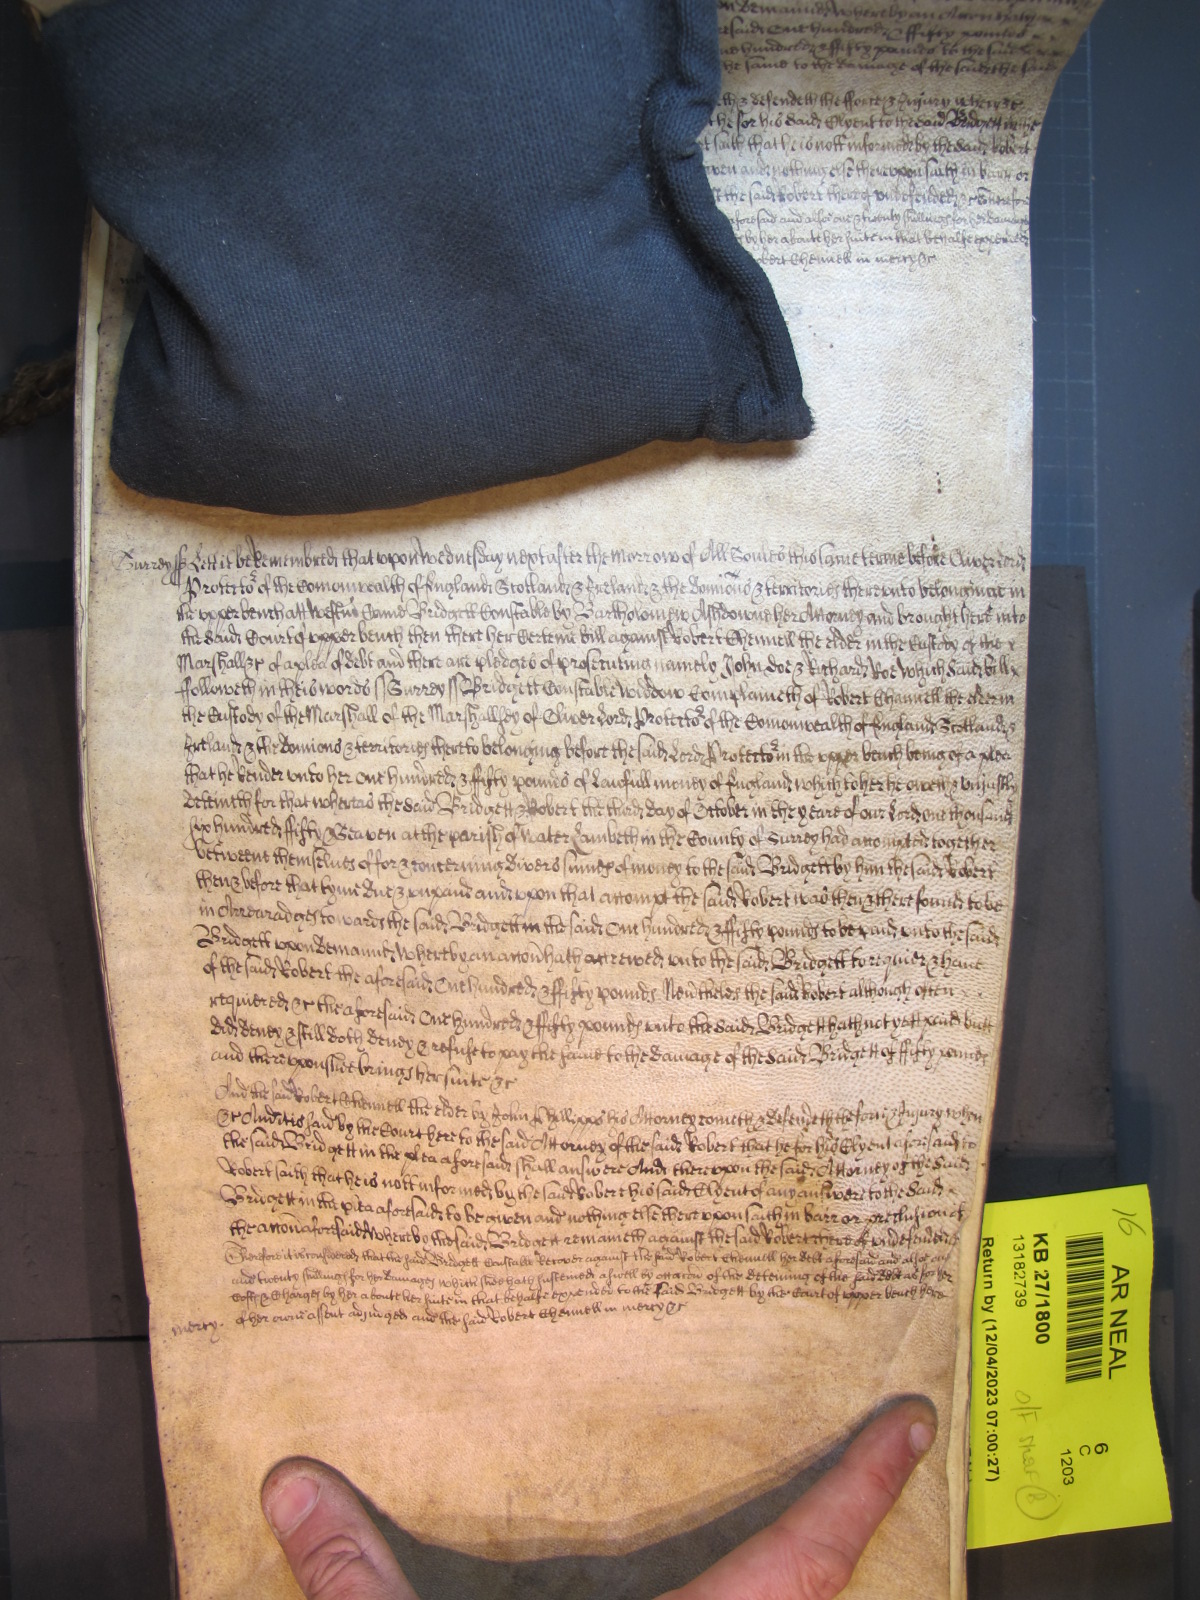 on demaund whereby an accon hath
said One hundred & ffifty pounds
One hundred & ffifty pounds to the said
the same to the damage of the said
defendeth the fforce & Injury when &c
he for his said Clyent to the said Bridgett in the
saith that he is nott informed by the said Robert
given and nothing else thereupon saith in barr or
the said Robert thereof undefended &c Therefore
aforesaid and also one & twenty shillings for her damages
by her about her suite in that behalfe expended
Robert Chennell in mercy &c
Surrey ss Lett it be Remembred that upon Wednesday next after the morrow of All Soules this same terme before Oliver Lord
Protector of the Comonwealth of England Scotland & Ireland & the dominions & territories thereunto belonging in
the upper bench att Westmr Came Bridgett Constable by Bartholomew Ashdowne her Attorney and brought here into
the said Court of upper bench then there her Certeine bill against Robert Chennell the elder in the Custody of the
Marshall &c of a plea of debt and there are pledges of prosecuting namely John Doe & Richard Roe which said bill
followeth in theis words ss Surrey ss Bridgett Constable Widdow Complaineth of Robert Chennell the elder in
the Custody of the Marshall of the Marshallsey of Oliver Lord Protector of the Comonwealth of England Scotland &
Ireland & the dominions & territories thereto belonging before the said Lord Protector in the upper bench being of a plea
that he Render unto her One hundred & ffifty pounds of Lawfull money of England which to her he oweth & uniustly
deteineth for that whereas the said Bridgett & Robert the third day of October in the yeare of our Lord one thousand
six hundred ffifty & Seaven at the parish of Water Lambeth in the County of Surrey had accompted together
betweene themselves of for & concerning divers summes of money to the said Bridgett by him the said Robert
then & before that tyme due & unpaid and upon that accompt the said Robert was then & there found to be
in Arrearadges towards the said Bridgett in the said One hundred & ffifty pounds to be paid unto the said
Bridgett upon demaund Whereby an accon hath accrewed unto the said Bridgett to require & have
of the said Robert the aforesaid One hundred & ffifty pounds Neverthelesse the said Robert although often
required &c the aforesaid One hundred & ffifty pounds unto the said Bridgett hath not yett paid butt
did deney & still doth deney & refuse to pay the same to the damage of the said Bridgett of ffifty pounds
and thereupon shee brings her suite &c
And the said Robert Chennell the elder by John Phillipps his Attorney cometh & defendeth the force & Injury when
&c And itis said by the Court here to the said Attorney of the said Robert that he for his Clyent aforesaid to
the said Bridgett in the plea aforesaid shall answere And thereupon the said Attorney of the said
Robert saith that he is nott informed by the said Robert his said Clyent of any answere to the said
Bridgett in the plea aforesaid to be given and nothing else thereupon saith in barr or preclusion of
the accon aforesaid Whereby the said Bridgett remaineth against the said Robert thereof undefended
Therefore it is considered that the said Bridgett Constable Recover against the said Robert Chennell her debt aforesaid and also one
and twenty shillings for her damages which shee hath susteined aswell by occasion of the deteining of the said debt as for her
Costs & Charges by her about her suite in that behalfe expended to the said Bridgett by the Court of upper bench here
of her owne assent adjudged and the said Robert Chennell in mercy &c
mercy.
16
AR NEAL
KB 27/1800
13182739
Return by (12/04/2023 07:00:27)
6
C
1203